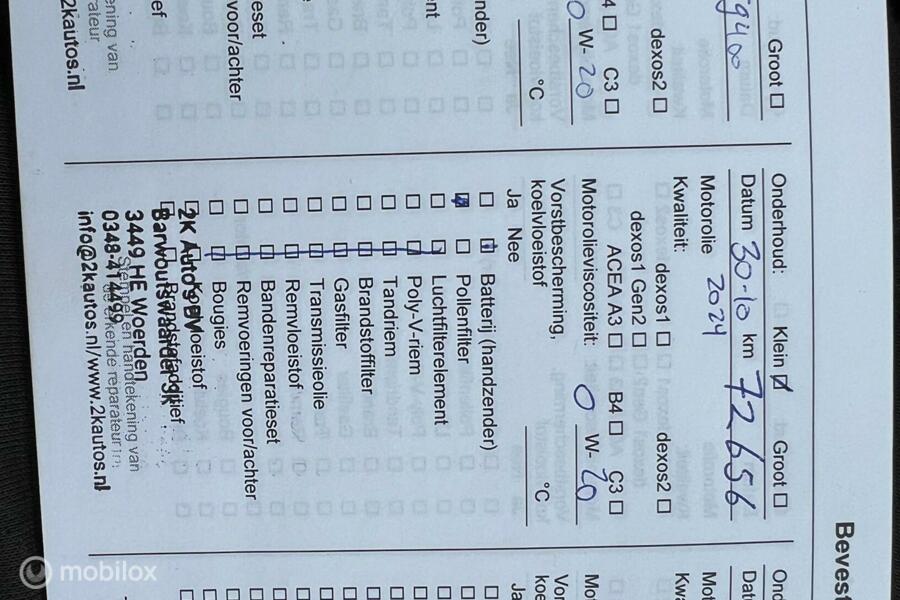 Groot ☐
dexos2 ☐
B4 ☐ C3 ☐
0 W-20
°C
voor/achter
2kautos.nl
Bevest
Onderhoud: Klein ☑ Groot ☐
Datum 30-10 km 72656
Motorolie 2024
Kwaliteit: dexos1 ☐ dexos2 ☐
dexos1 Gen2 ☐
ACEA A3 ☐ B4 ☐ C3 ☐
Motorolieviscositeit: 0 W-20
Vorstbescherming,
koelvloeistof °C
Ja Nee
Batterij (handzender)
Pollenfilter
Luchtfilterelement
Poly-V-riem
Tandriem
Brandstoffilter
Gasfilter
Transmissieolie
Remvloeistof
Bandenreparatieset
Remvoeringen voor/achter
Bougies
Koelvloeistof
Brandstofadditief
2K Auto's BV
Barwoutswaarder 3K
3449 HE Woerden
0348-414499
info@2kautos.nl/www.2kautos.nl
Stempel en handtekening van
de erkende reparateur
mobilox